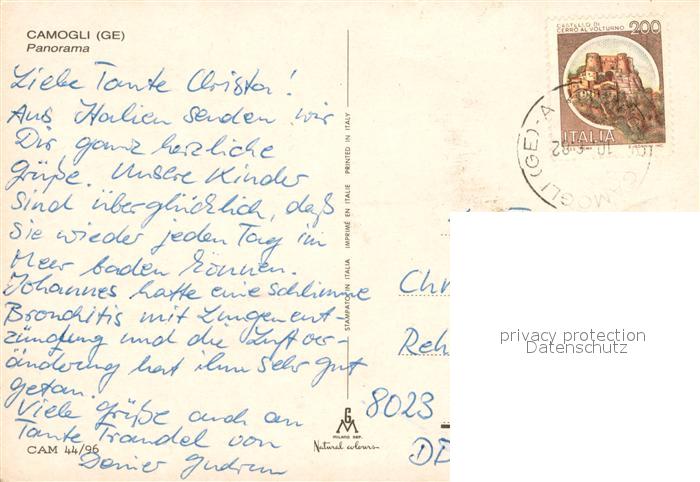 CAMOGLI (GE)
Panorama
Liebe Tante Christa!
Aus Italien senden wir
Dir ganz herzliche
Grüße. Unsere Kinder
sind überglücklich, daß
sie wieder jeden Tag im
Meer baden können.
Johannes hatte eine schlimme
Bronchitis mit Lungenent-
zündung und die Luftver-
änderung hat ihm sehr gut
getan.
Viele Grüße auch an
Tante Traudel von
Deiner Gudrun
CAM 44/96
STAMPATO IN ITALIA IMPRIMÉ EN ITALIE PRINTED IN ITALY
GM
MILANO DEP.
Natural colours
CASTELLO DI
CERRO AL VOLTURNO
200
ITALIA
CAMOGLI (GE) - A
Chr
Reh
8023
DD
privacy protection
Datenschutz